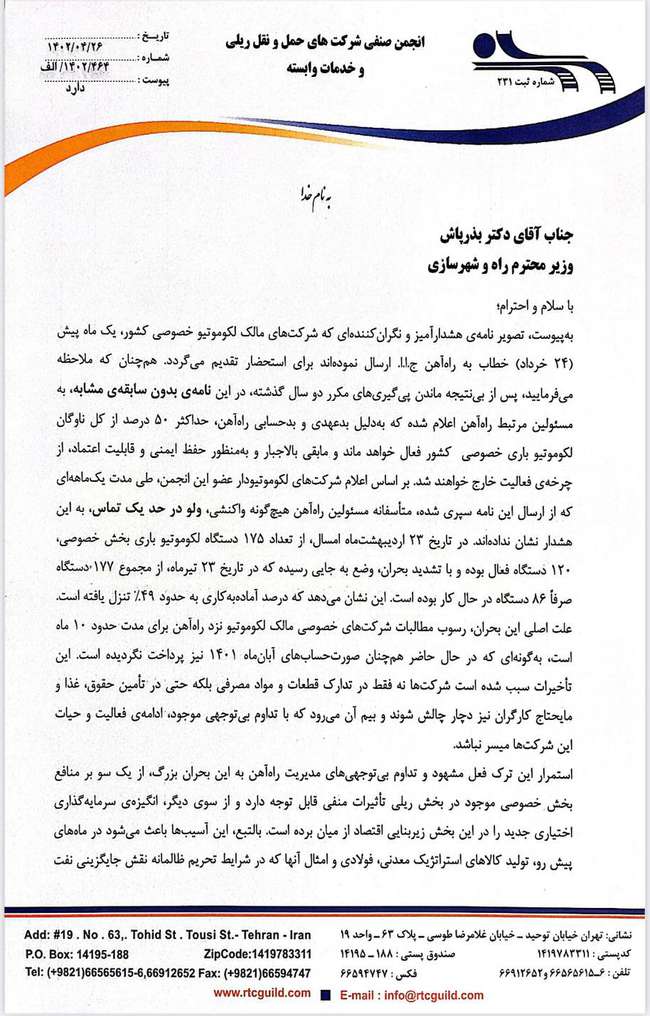 انجمن صنفی شرکت های حمل و نقل ریلی
و خدمات وابسته
شماره ثبت ۲۳۱
تاریخ : ۱۴۰۲/۰۴/۲۶
شماره : ۱۴۰۲/۴۶۴/ الف
پیوست : دارد
به نام خدا
جناب آقای دکتر بذرپاش
وزیر محترم راه و شهرسازی
با سلام و احترام؛
به‌پیوست، تصویر نامه‌ی هشدارآمیز و نگران‌کننده‌ای که شرکت‌های مالک لکوموتیو خصوصی کشور، یک ماه پیش
(۲۴ خرداد) خطاب به راه‌آهن ج.ا.ا. ارسال نموده‌اند برای استحضار تقدیم می‌گردد. هم‌چنان که ملاحظه
می‌فرمایید، پس از بی‌نتیجه ماندن پی‌گیری‌های مکرر دو سال گذشته، در این نامه‌ی بدون سابقه‌ی مشابه، به
مسئولین مرتبط راه‌آهن اعلام شده که به‌دلیل بدعهدی و بدحسابی راه‌آهن، حداکثر ۵۰ درصد از کل ناوگان
لکوموتیو باری خصوصی کشور فعال خواهد ماند و مابقی بالاجبار و به‌منظور حفظ ایمنی و قابلیت اعتماد، از
چرخه‌ی فعالیت خارج خواهند شد. بر اساس اعلام شرکت‌های لکوموتیودار عضو این انجمن، طی مدت یک‌ماهه‌ای
که از ارسال این نامه سپری شده، متأسفانه مسئولین راه‌آهن هیچ‌گونه واکنشی، ولو در حد یک تماس، به این
هشدار نشان نداده‌اند. در تاریخ ۲۳ اردیبهشت‌ماه امسال، از تعداد ۱۷۵ دستگاه لکوموتیو باری بخش خصوصی،
۱۲۰ دستگاه فعال بوده و با تشدید بحران، وضع به جایی رسیده که در تاریخ ۲۳ تیرماه، از مجموع ۱۷۷ دستگاه
صرفاً ۸۶ دستگاه در حال کار بوده است. این نشان می‌دهد که درصد آماده‌به‌کاری به حدود ۴۹٪ تنزل یافته است.
علت اصلی این بحران، رسوب مطالبات شرکت‌های خصوصی مالک لکوموتیو نزد راه‌آهن برای مدت حدود ۱۰ ماه
است، به‌گونه‌ای که در حال حاضر هم‌چنان صورت‌حساب‌های آبان‌ماه ۱۴۰۱ نیز پرداخت نگردیده است. این
تأخیرات سبب شده است شرکت‌ها نه فقط در تدارک قطعات و مواد مصرفی بلکه حتی در تأمین حقوق، غذا و
مایحتاج کارگران نیز دچار چالش شوند و بیم آن می‌رود که با تداوم بی‌توجهی موجود، ادامه‌ی فعالیت و حیات
این شرکت‌ها میسر نباشد.
استمرار این ترک فعل مشهود و تداوم بی‌توجهی‌های مدیریت راه‌آهن به این بحران بزرگ، از یک سو بر منافع
بخش خصوصی موجود در بخش ریلی تأثیرات منفی قابل توجه دارد و از سوی دیگر، انگیزه‌ی سرمایه‌گذاری
اختیاری جدید را در این بخش زیربنایی اقتصاد از میان برده است. بالتبع، این آسیب‌ها باعث می‌شود در ماه‌های
پیش رو، تولید کالاهای استراتژیک معدنی، فولادی و امثال آنها که در شرایط تحریم ظالمانه نقش جایگزینی نفت
نشانی: تهران خیابان توحید ـ خیابان غلامرضا طوسی ـ پلاک ۶۳ ـ واحد ۱۹
کدپستی : ۱۴۱۹۷۸۳۳۱۱ صندوق پستی : ۱۸۸ ـ ۱۴۱۹۵
تلفن : ۶ـ۶۶۵۶۵۶۱۵ و ۶۶۹۱۲۶۵۲ فکس : ۶۶۵۹۴۷۴۷
Add: #19 . No . 63,. Tohid St . Tousi St.- Tehran - Iran
P.O. Box: 14195-188 ZipCode:1419783311
Tel: (+9821)66565615-6,66912652 Fax: (+9821)66594747
www.rtcguild.com E-mail : info@rtcguild.com